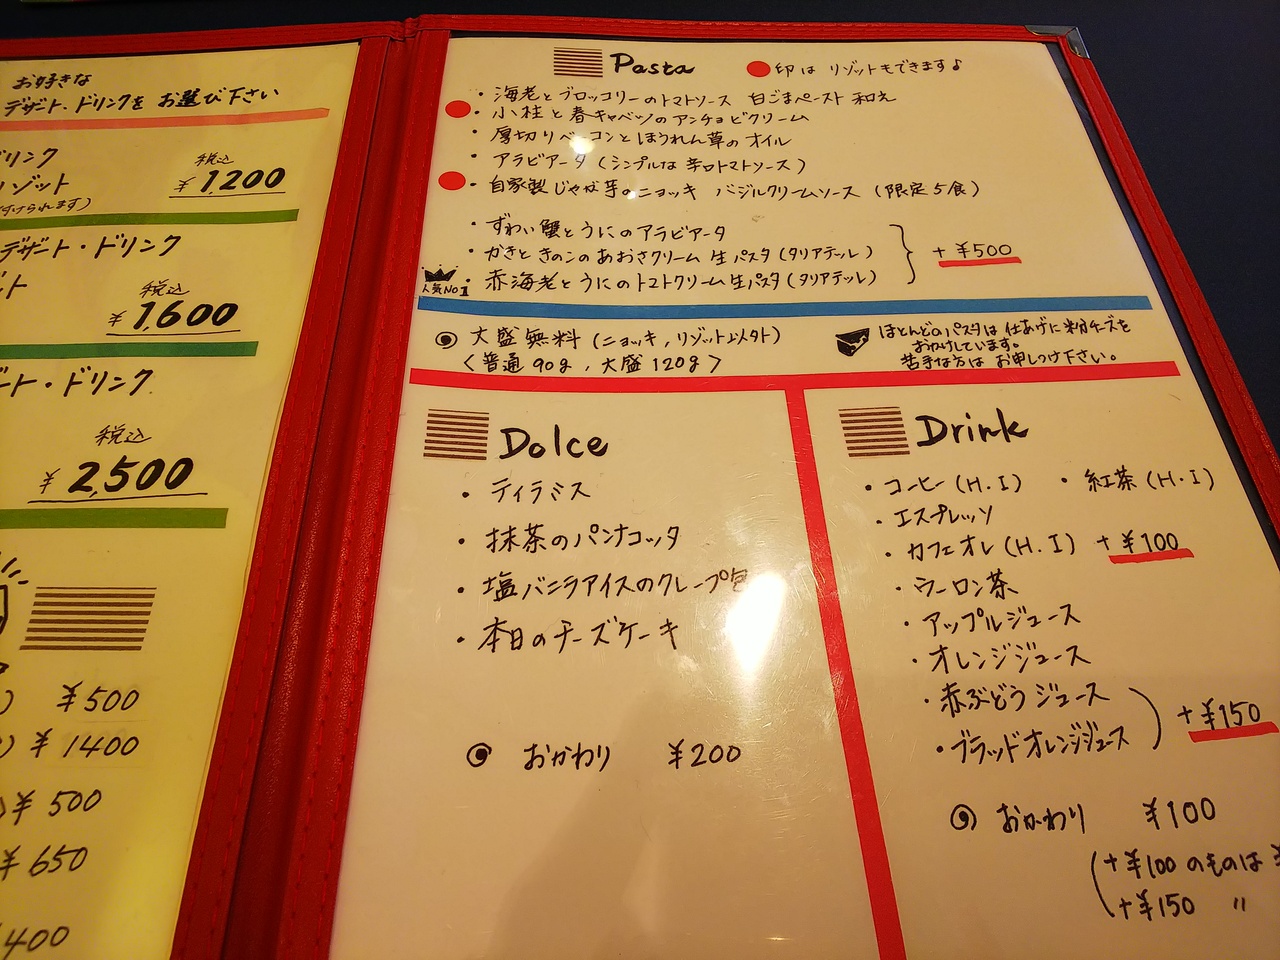 お好きな
デザート、ドリンクを お選び下さい
ドリンク
リゾット
付けられます)
税込
¥1200
デザート・ドリンク
ット
税込
¥1,600
ート・ドリンク
税込
¥2,500
) ¥500
) ¥1400
¥500
¥650
400
Pasta
印は リゾットもできます♪
・海老とブロッコリーのトマトソース 白ごまペースト 和え
・小柱と春キャベツのアンチョビクリーム
・厚切りベーコンとほうれん草のオイル
・アラビアータ (シンプルな 辛口トマトソース)
・自家製じゃが芋のニョッキ バジルクリームソース (限定5食)
・ずわい蟹とうにのアラビアータ
・かきときのこのあおさクリーム 生パスタ(タリアテッレ)
+¥500
人気No1
・赤海老とうにのトマトクリーム生パスタ(タリアテッレ)
◎ 大盛無料 (ニョッキ,リゾット以外)
〈普通 90g, 大盛 120g〉
ほとんどのパスタは 仕あげに粉チーズを
おかけしています。
苦手な方は お申しつけ下さい。
Dolce
・ティラミス
・抹茶のパンナコッタ
・塩バニラアイスのクレープ包
・本日のチーズケーキ
◎ おかわり ¥200
Drink
・コーヒー(H.I) ・紅茶(H・I)
・エスプレッソ
・カフェオレ(H.I) +¥100
・ウーロン茶
・アップルジュース
・オレンジジュース
・赤ぶどうジュース
・ブラッドオレンジジュース
+¥150
◎ おかわり ¥100
(+¥100 のものは ¥
+¥150 〃